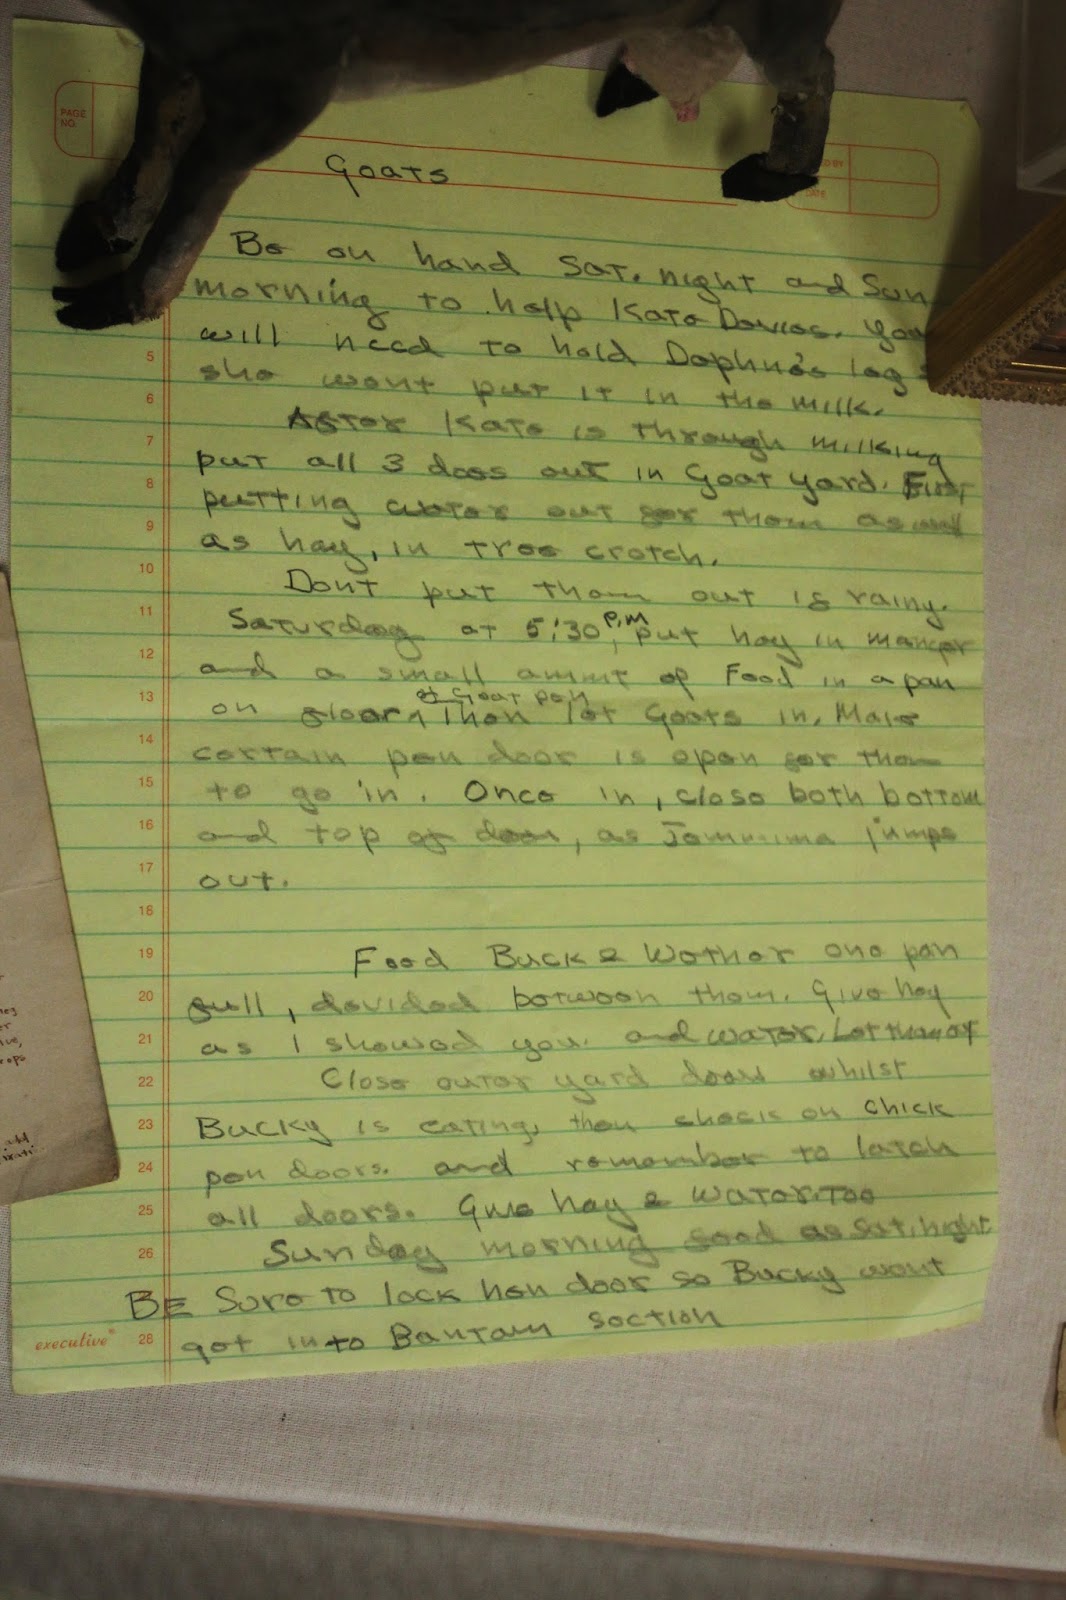 PAGE
NO.
D BY
DATE
Goats
Be on hand Sat. night and Sun
morning to help Kate Davies. You
5 will need to hold Daphne's leg
6 she wont put it in the milk.
7 After Kate is through milking
8 put all 3 does out in Goat yard. First
9 putting water out for them as well
10 as hay, in tree crotch.
11 Dont put them out if rainy.
12 Saturday at 5:30 P.M, put hay in manger
13 and a small ammt of Food in a pan
of Goat pen
14 on floor, Then let Goats in. Make
15 certain pen door is open for them
16 to go in. Once in, close both bottom
17 and top of door, as Jemmima jumps
18 out.
19 Feed Buck & Wether one pan
20 full, devided between them. Give hay
21 as I showed you. and water.
22 Close outer yard door whilst
23 Bucky is eating, then check on chick
24 pen doors. and remember to latch
25 all doors. Give hay & water. Too
26 Sunday morning feed as Sat. night.
BE Sure to lock hen door so Bucky wont
28 get into Bantam section
executive®